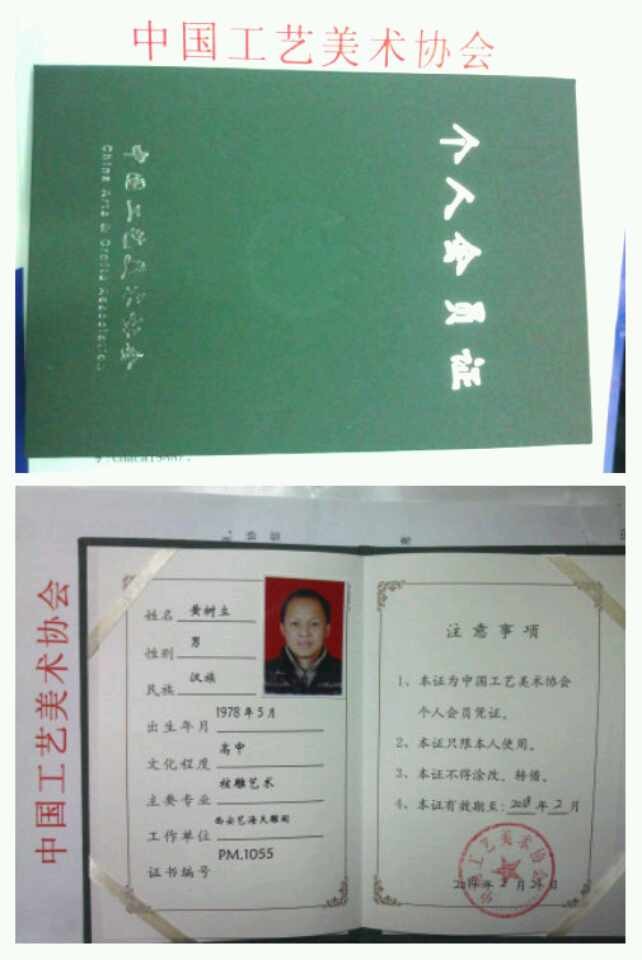 中国工艺美术协会
个人会员证
中国工艺美术协会
China Arts & Crafts Association
中国工艺美术协会
姓名 黄树立
性别 男
民族 汉族
出生年月 1978年5月
文化程度 高中
主要专业 核雕艺术
工作单位 西安艺海天雕阁
证书编号 PM.1055
注意事项
1、本证为中国工艺美术协会
个人会员凭证。
2、本证只限本人使用。
3、本证不得涂改、转借。
4、本证有效期至：2018年2月
中国工艺美术协会